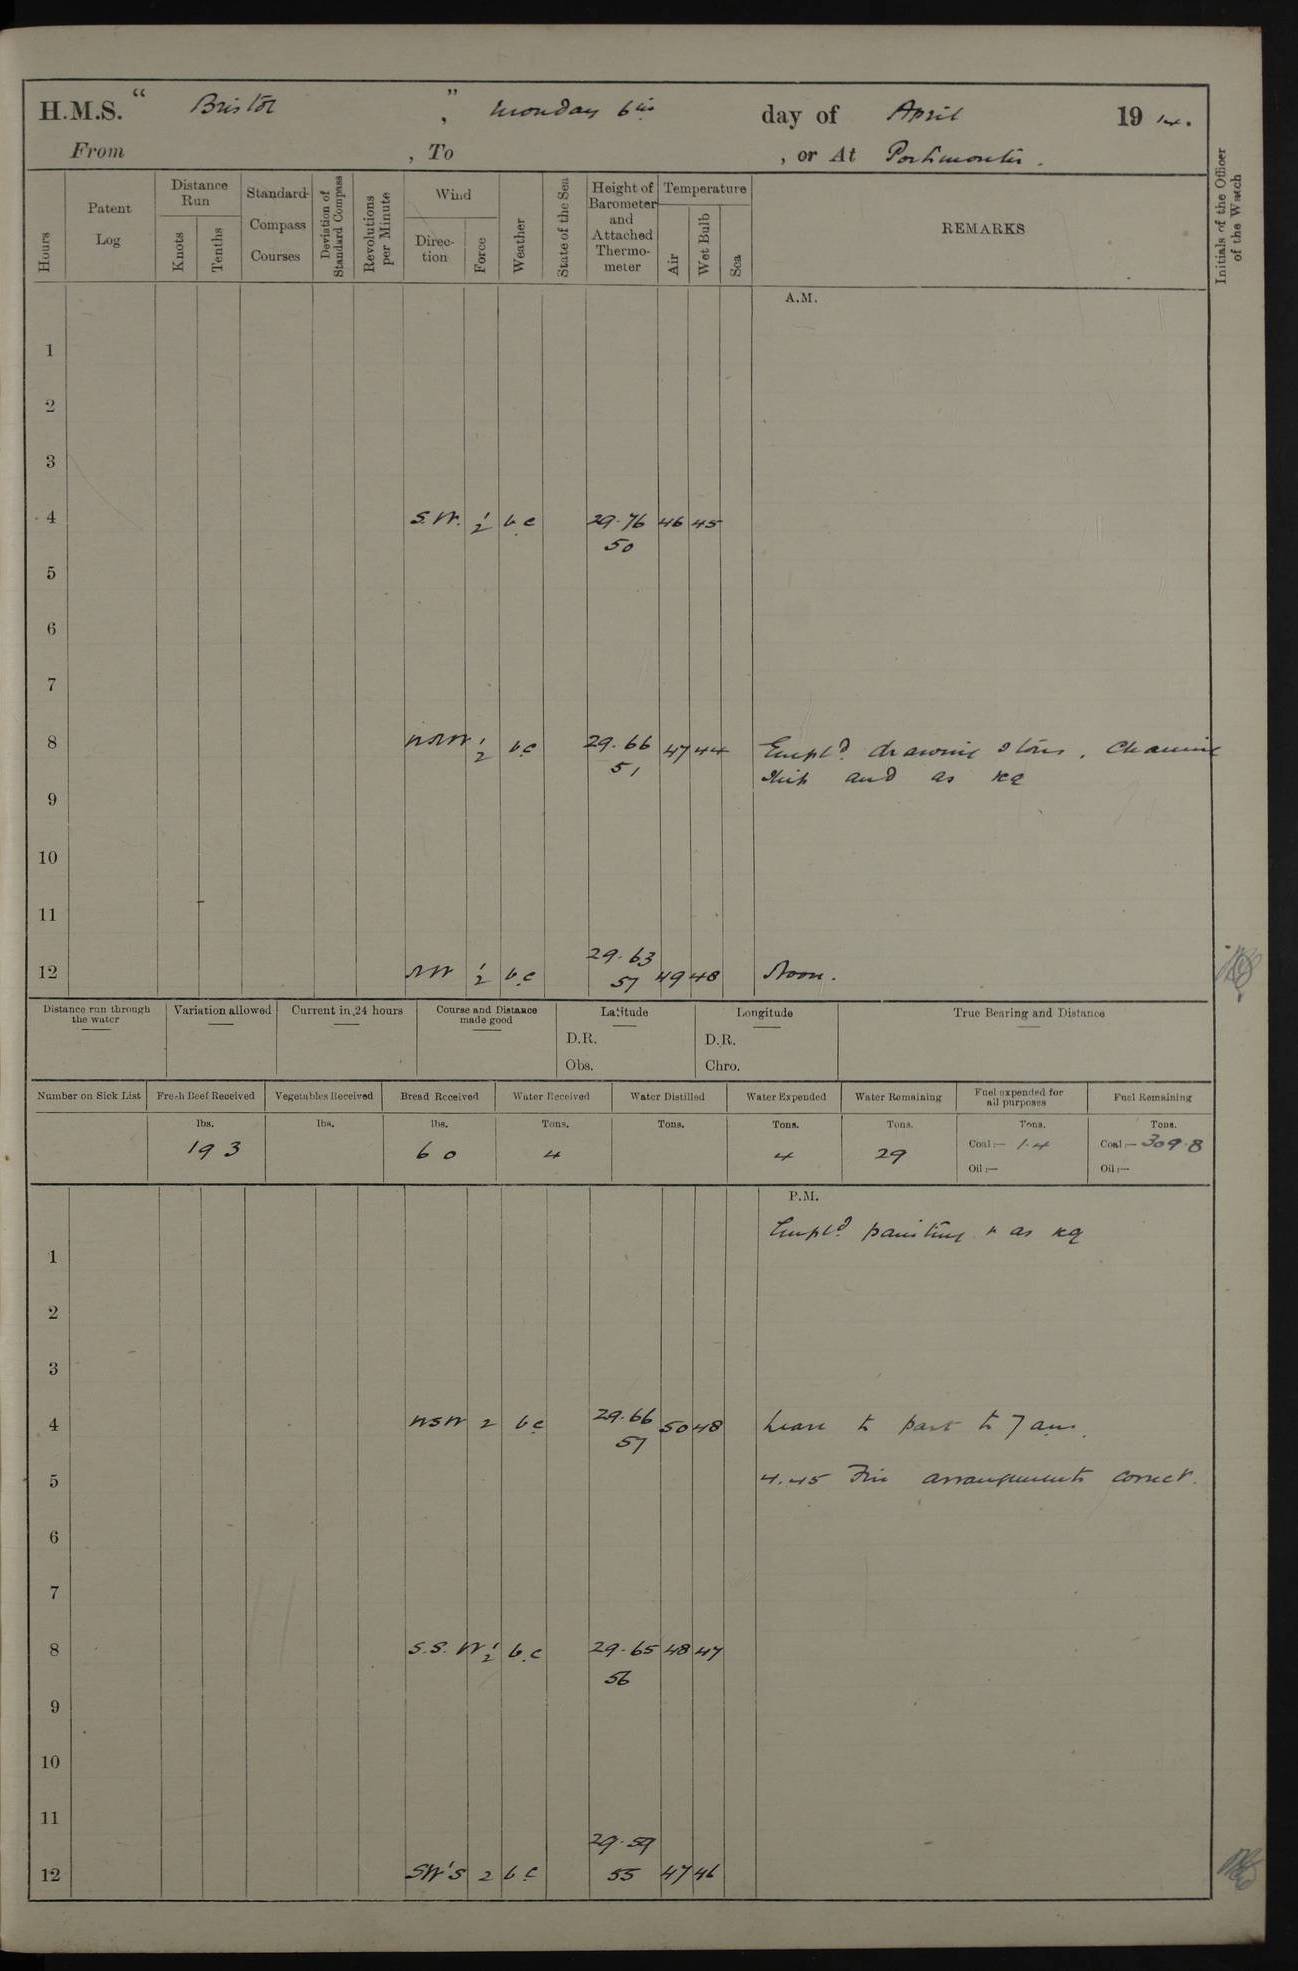 H.M.S. " Bristol ", Monday 6th day of April 1914.
From , To , or At Portsmouth.
Hours Patent Log Distance Run Knots Tenths Standard Compass Courses Deviation of Standard Compass Revolutions per Minute Wind Direc-tion Force Weather State of the Sea Height of Barometer and Attached Thermo-meter Temperature Air Wet Bulb Sea REMARKS Initials of the Officer of the Watch
A.M.
1
2
3
4 S.W. 1/2 b.c 29.76 46 45
50
5
6
7
8 1/2 b.c 29.66 47 44 Empld. drawing stores, cleaning
51 ship and as req
9
10
11
29.63
12 NW 1/2 b.c 57 49 48 Noon.
Distance run through the water Variation allowed Current in 24 hours Course and Distance made good Latitude Longitude True Bearing and Distance
D.R. D.R.
Obs. Chro.
Number on Sick List Fresh Beef Received Vegetables Received Bread Received Water Received Water Distilled Water Expended Water Remaining Fuel expended for all purposes Fuel Remaining
lbs. lbs. lbs. Tons. Tons. Tons. Tons. Tons. Tons.
193 60 4 4 29 Coal:— 1.4 Coal:— 309.8
Oil:— Oil:—
P.M.
Empld. painting & as req
1
2
3
4 WSW 2 b.c 29.66 50 48 Leave to part to 7 am.
57
5 4.45 Fire arrangements correct.
6
7
8 S.S.W 1/2 b.c 29.65 48 47
56
9
10
11
29.59
12 SW'S 2 b.c 55 47 46